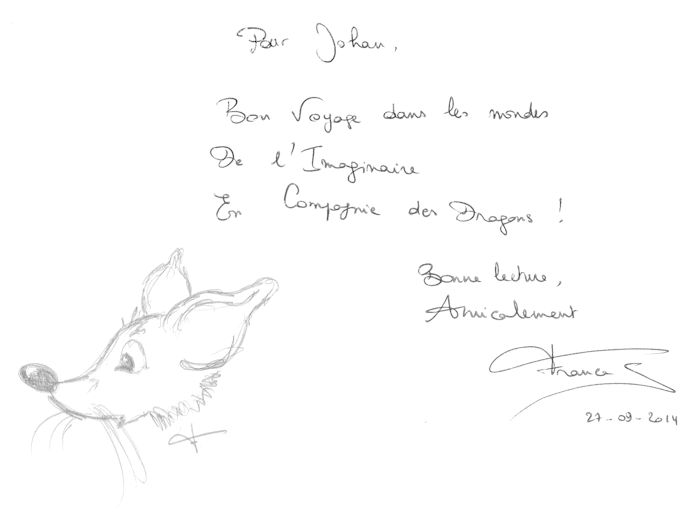 Pour Johan,
Bon Voyage dans les mondes
De l'Imaginaire
En Compagnie des Dragons !
Bonne lecture,
Amicalement
27-09-2014